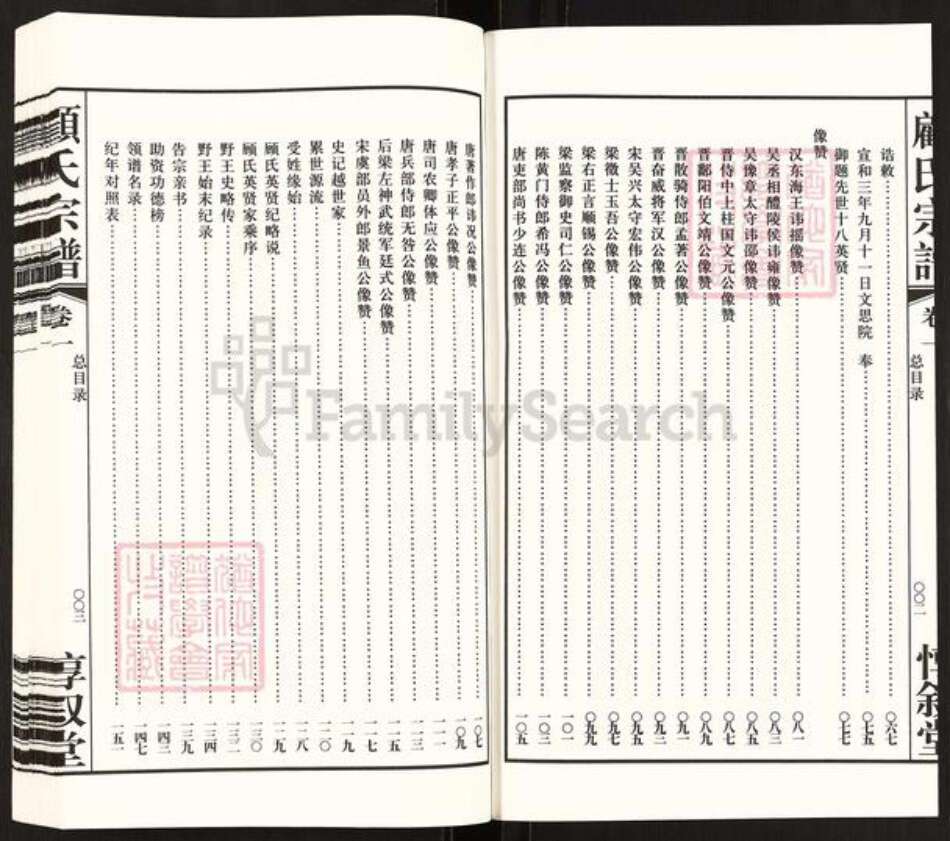 顾氏宗谱
卷一
总目录
〇〇二
惇叙堂
诰敕 〇六七
宣和三年九月十一日文思院 奉 〇七五
御题先世十八英贤 〇七七
像赞
汉东海王讳摇像赞 〇八一
吴丞相醴陵侯讳雍像赞 〇八三
吴豫章太守讳邵像赞 〇八五
晋侍中上柱国文元公像赞 〇八七
晋鄱阳伯文靖公像赞 〇八九
晋散骑侍郎孟著公像赞 〇九一
晋奋威将军汉公像赞 〇九三
宋吴兴太守宏伟公像赞 〇九五
梁微士玉吾公像赞 〇九七
梁右正言顺锡公像赞 〇九九
梁监察御史司仁公像赞 一〇一
陈黄门侍郎希冯公像赞 一〇三
唐吏部尚书少连公像赞 一〇五
唐著作郎讳况公像赞 一〇七
唐孝子正平公像赞 一〇九
唐司农卿体应公像赞 一一一
唐兵部侍郎无咎公像赞 一一三
后梁左神武统军廷式公像赞 一一五
宋虞部员外郎景鱼公像赞 一一七
史记越世家 一一九
累世源流 一二〇
受姓缘始 一二八
顾氏英贤纪略说 一二九
顾氏英贤家乘序 一三〇
野王史略传 一三二
野王始末纪录 一三四
告宗亲书 一三九
助资功德榜 一四三
领谱名录 一四七
纪年对照表 一五一
顾氏宗谱
卷一
总目录
〇〇三
惇叙堂
FamilySearch